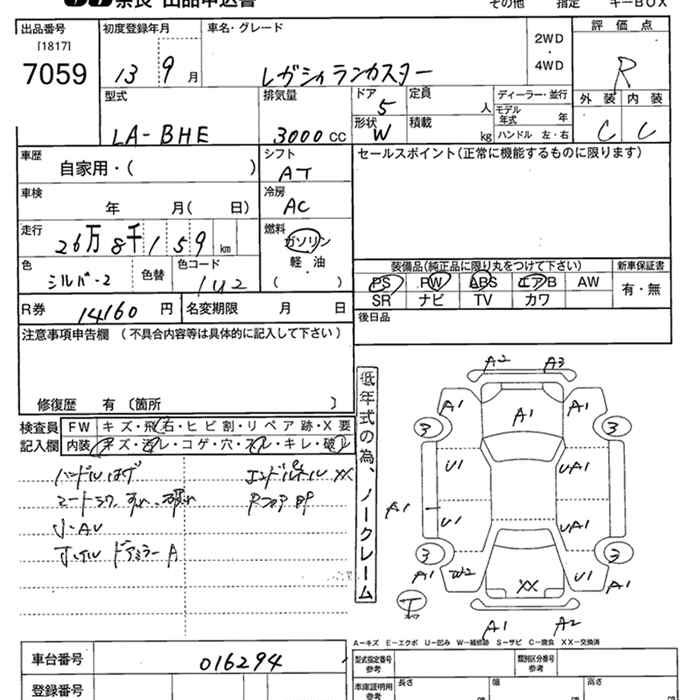 奈良 出品申込書
その他 指定 キーBOX
出品番号
[1817]
7059
初度登録年月
13 9 月
車名・グレード
レガシィランカスター
2WD
・
4WD
評価点
R
外装 内装
C C
型式
LA-BHE
排気量
3000 CC
ドア
5
定員
人
形状
W
積載
kg
ディーラー・並行
モデル年式 年
ハンドル 左・右
車歴
自家用・( )
シフト
AT
セールスポイント(正常に機能するものに限ります)
車検
年 月( 日)
冷房
AC
走行
26万8千159 km
燃料
ガソリン
軽・油
( )
色
シルバー2
色替
色コード
1U2
装備品(純正品に限り丸をつけて下さい)
PS PW ABS エアB AW
SR ナビ TV カワ
新車保証書
有・無
R券 14160 円
名変期限 月 日
後日品
注意事項申告欄 (不具合内容等は具体的に記入して下さい)
修復歴 有〔箇所 〕
検査員記入欄
FW キズ・飛石・ヒビ割・リペア跡・X要
内装 キズ・汚レ・コゲ・穴・スレ・キレ・破レ
ハンドルはげ
小-AU
低年式の為、ノークレーム
A2 A3
A1 A1 A1
3 3
U1 UA1
A1
U1 UA1
3 3
A1 W2 XX U1 A1
T
A1 A2
A-キズ E-エクボ U-凹み W-補修跡 S-サビ C-腐食 XX-交換済
車台番号 016294
登録番号
型式指定番号
参考
類別区分番号
参考
車庫証明用
参考
長さ 幅 高さ